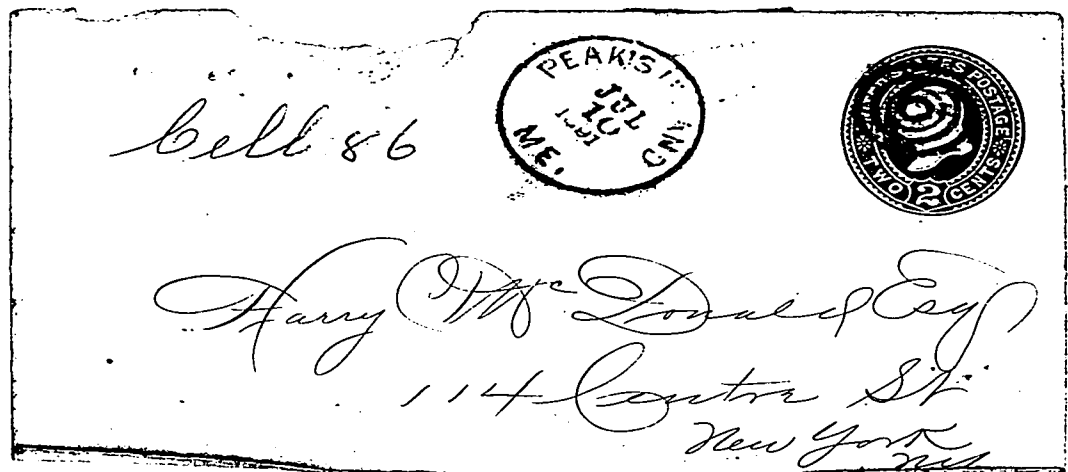 PEAK'S
JUL
10
1891
ME.
UNITED STATES POSTAGE
TWO 2 CENTS
Cell 86
Harry McDonald Esq
114 Centre St.
New York
NY